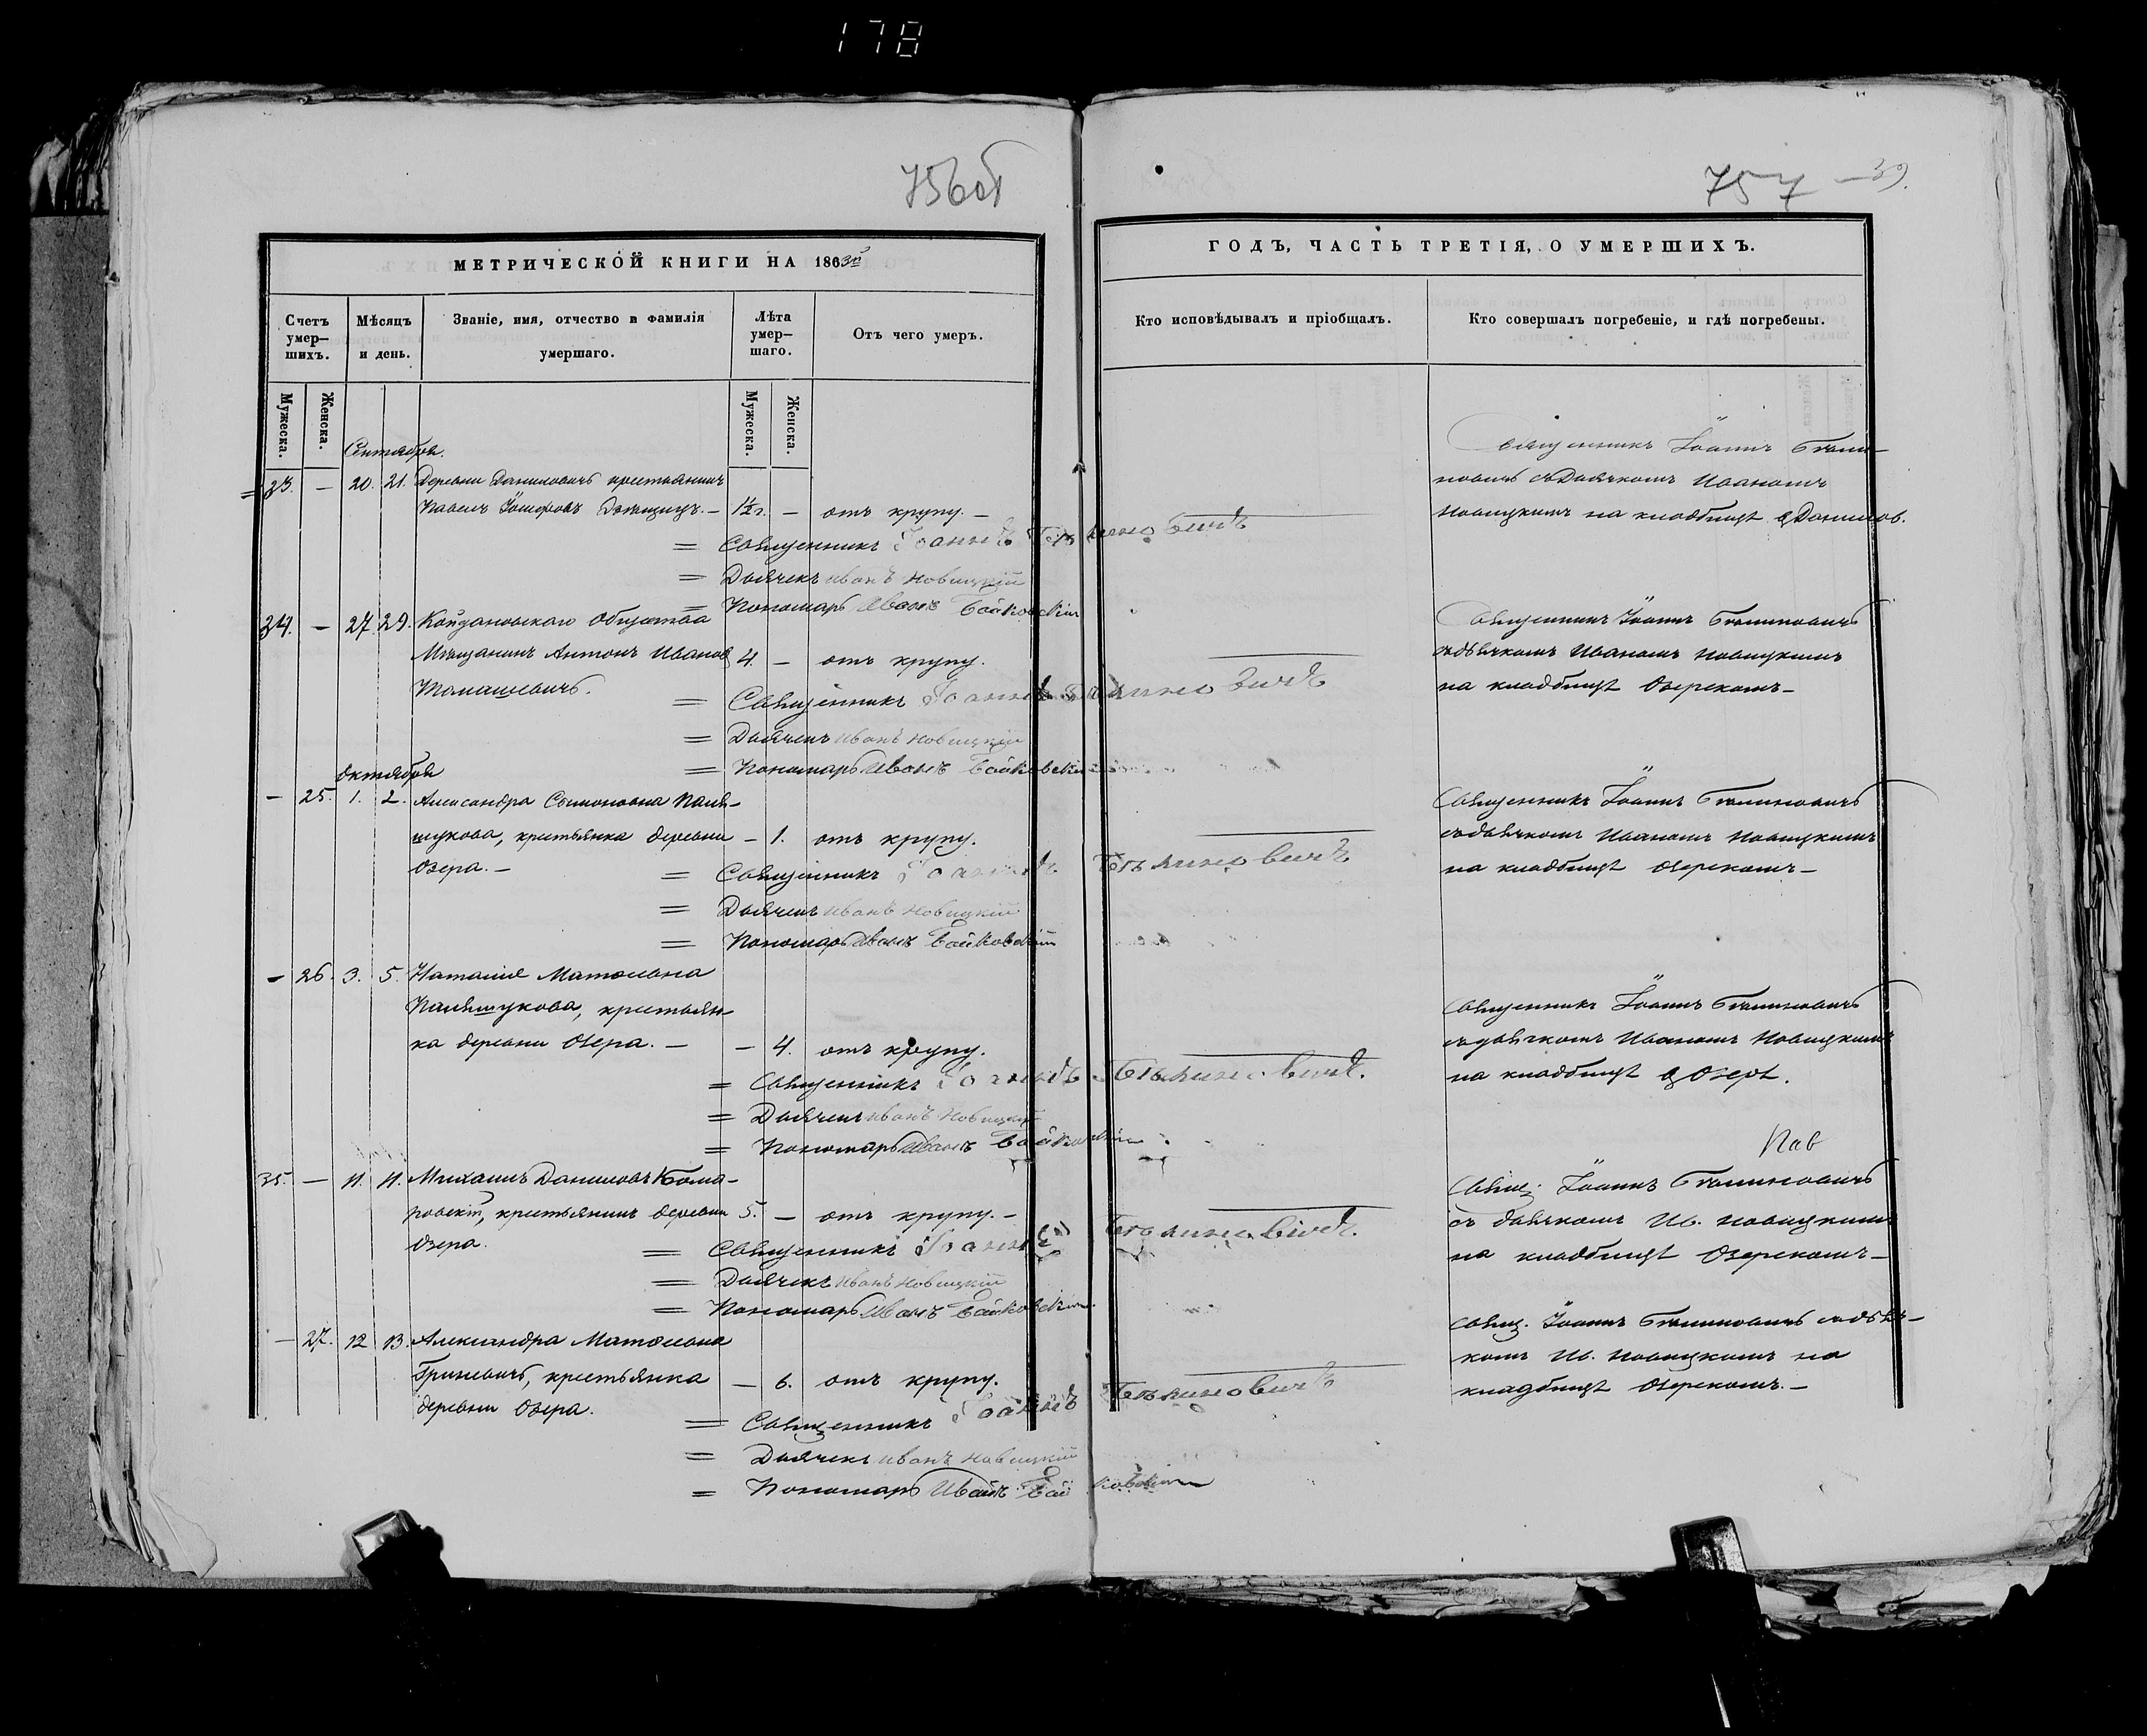 178
756об
МЕТРИЧЕСКОЙ КНИГИ НА 1863й
Счетъ умер-шихъ.
Мѣсяцъ и день.
Званіе, имя, отчество и фамилія умершаго.
Лѣта умер-шаго.
Отъ чего умеръ.
Мужеска.
Женска.
Мужеска.
Женска.
Сентября.
33. — 20. 21. Деревни Даниловичъ крестьянинъ
Павелъ — 1½ г. — отъ крупу. —
= Священникъ Іоаннъ Бѣлиновичъ
= Дьячекъ Иванъ Новицкій
= Пономарь Иванъ Байковскій
34. — 27. 29. Койдановскаго Общества
Мѣщанинъ Антонъ Иванов 4. — отъ крупу.
= Священникъ Іоаннъ Бѣлиновичъ
= Дьячекъ Иванъ Новицкій
Октября
= Пономарь Иванъ Байковскій
— 25. 1. 2. Александра Симоновна Паля-
шукова, крестьянка деревни — 1. отъ крупу.
Озера. —
= Священникъ Іоаннъ Бѣлиновичъ
= Дьячекъ Иванъ Новицкій
= Пономарь Иванъ Байковскій
— 26. 3. 5. Наталія
Паляшукова, крестьян-
ка деревни Озера. — — 4. отъ крупу.
= Священникъ Іоаннъ Бѣлиновичъ.
= Дьячекъ Иванъ Новицкій
= Пономарь Иванъ Байковскій
35. — 11. 11. Михаилъ Даниловъ Кома-
ровскій, крестьянинъ деревни 5. — отъ крупу. —
Озера.
= Священникъ Іоаннъ Бѣлиновичъ.
= Дьячекъ Иванъ Новицкій
= Пономарь Иванъ Байковскій
— 27. 12 13. Александра
Гриневичъ, крестьянка — 6. отъ крупу.
деревни Озера.
= Священникъ Іоаннъ Бѣлиновичъ
= Дьячекъ Иванъ Новицкій
= Пономарь Иванъ Байковскій
757 — 39.
ГОДЪ, ЧАСТЬ ТРЕТІЯ, О УМЕРШИХЪ.
Кто исповѣдывалъ и пріобщалъ.
Кто совершалъ погребеніе, и гдѣ погребены.
Священникъ Іоаннъ Бѣли-
новичъ съ Дьячкомъ Иваномъ
Новицкимъ на кладбищѣ д. Данилов.
Священникъ Іоаннъ Бѣлиновичъ
съ дьячкомъ Иваномъ Новицкимъ
на кладбищѣ Озерскомъ —
Священникъ Іоаннъ Бѣлиновичъ
съ дьячкомъ Иваномъ Новицкимъ
на кладбищѣ Озерскомъ —
Священникъ Іоаннъ Бѣлиновичъ
съ дьячкомъ Иваномъ Новицкимъ
на кладбищѣ д. Озерѣ.
Нав
Свящ. Іоаннъ Бѣлиновичъ
съ дьячкомъ Ив. Новицкимъ
на кладбищѣ Озерскомъ —
Свящ. Іоаннъ Бѣлиновичъ съ дьяч-
комъ Ив. Новицкимъ на
кладбищѣ Озерскомъ. —